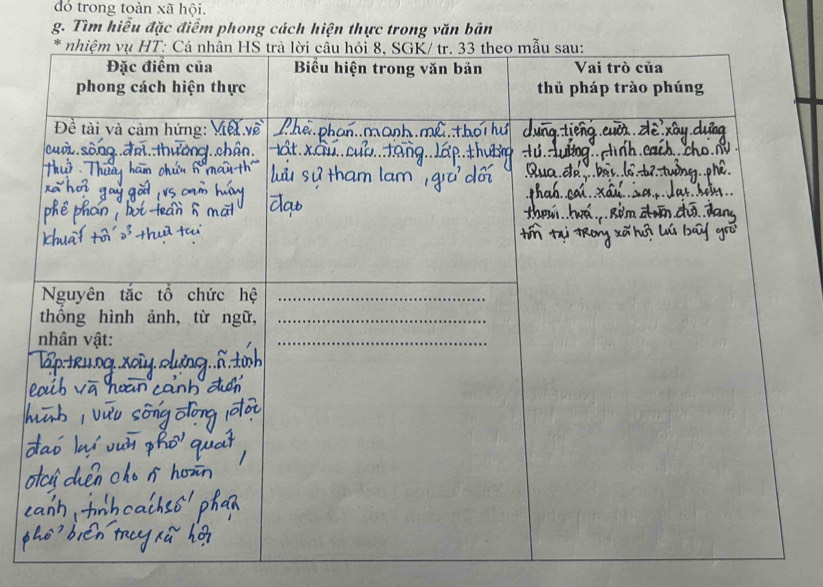 đó trong toàn xã hội.
g. Tìm hiểu đặc điểm phong cách hiện thực trong văn bản
* nhiệm vụ HT: Cá nhân HS trả lời câu hỏi 8, SGK/ tr. 33 theo mẫu sau:
Đặc điểm của
phong cách hiện thực
Biểu hiện trong văn bản
Vai trò của
thủ pháp trào phúng
Đề tài và cảm hứng: Viết về
cuộc sống đời thường chân
thực. Thường hàm chứa
xã hội gay gắt, vs cảm hứng
phê phán, bóc trần mặt
khuất tối ở thực tại
Phê phán mạnh mẽ thói hư
tật xấu của tầng lớp thượng
lưu sự tham lam, giả dối
đạo
dùng tiếng cười để xây dựng
tư tưởng tính cách cho nv
Qua đó, bộc lộ tư tưởng phê
phán cái xấu xa,
tồn tại trong xã hội lúc bấy giờ
Nguyên tắc tổ chức hệ
thống hình ảnh, từ ngữ,
nhân vật:
Tập trung xây dựng tính
cách và hoàn cảnh điển
hình, vừa sống động, độc
đáo lại vừa phổ quát,
đại diện cho hoàn
cảnh, tính cách số phận
phổ biến xã hội